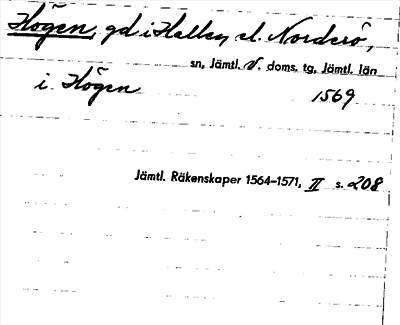 Högen, gd i Hallen el. Norderö,
sn, Jämtl. V. doms. tg, Jämtl. län
i Högen 1569
Jämtl. Räkenskaper 1564–1571, II s. 208